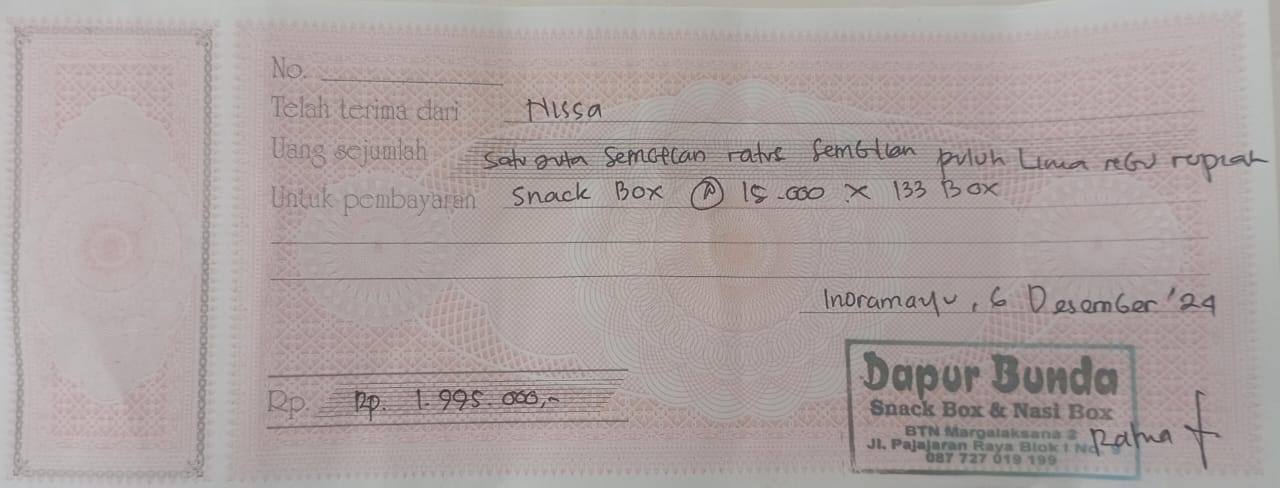 No.
Telah terima dari Nissa
Uang sejumlah Satu juta Sembilan ratus Sembilan puluh Lima ribu rupiah
Untuk pembayaran Snack Box @ 15.000 x 133 Box
Indramayu, 6 Desember '24
Rp. Rp. 1.995.000,-
Dapur Bunda
Snack Box & Nasi Box
BTN Margalaksana 2
Jl. Pajajaran Raya Blok I No
087 727 019 199
Ratna